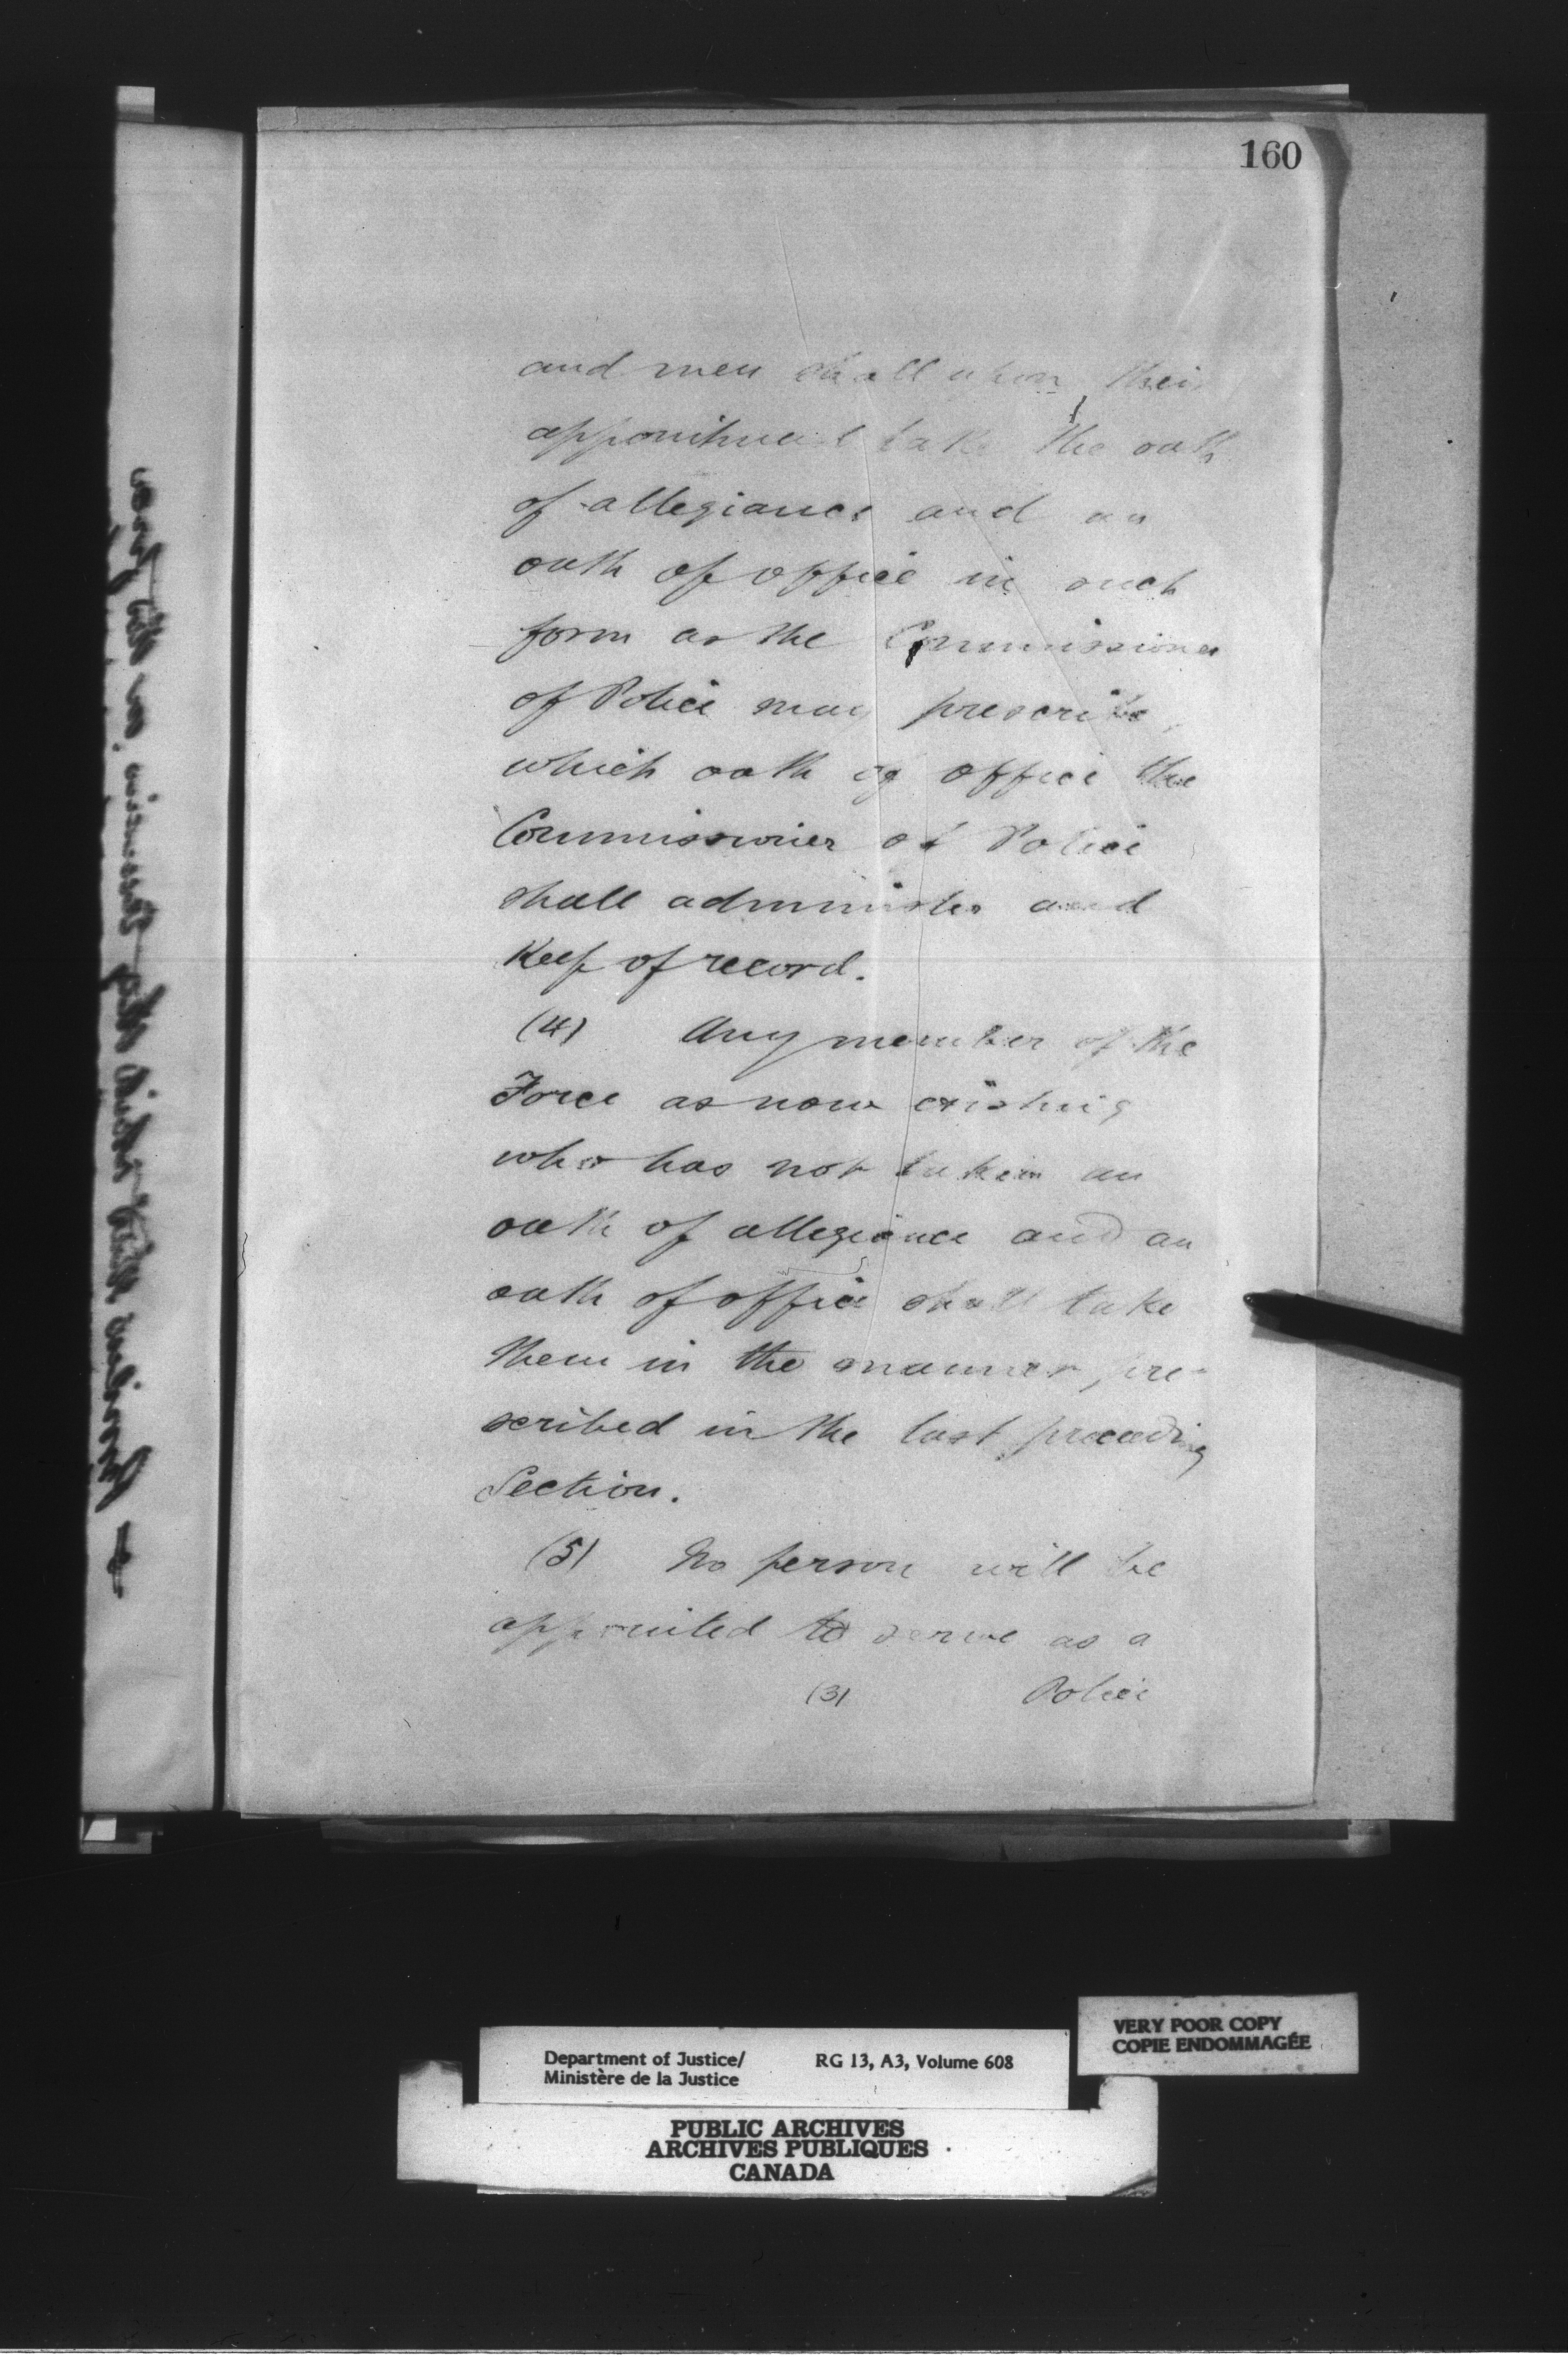 160
and men shall upon their
appointment take the oath
of allegiance and an
oath of office in such
form as the Commissioner
of Police may prescribe,
which oath of office the
Commissioner of Police
shall administer and
Keep of record.
(4) Any member of the
Force as now existing
who has not taken an
oath of allegiance and an
oath of office shall take
them in the manner pre-
scribed in the last preceeding
Section.
(5) No person will be
appointed to serve as a
(3) Police
VERY POOR COPY
COPIE ENDOMMAGÉE
Department of Justice/ RG 13, A3, Volume 608
Ministère de la Justice
PUBLIC ARCHIVES
ARCHIVES PUBLIQUES
CANADA